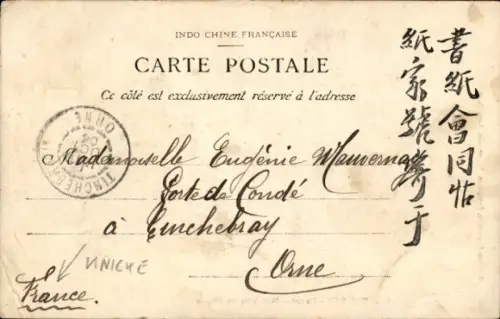 INDO CHINE FRANÇAISE
CARTE POSTALE
Ce côté est exclusivement réservé à l'adresse
TINCHEBRAY
ORNE
Mademoiselle Eugénie
Porte de Condé
à Tinchebray
Orne
France.
UNICKE
書紙會同
紙家號寄于